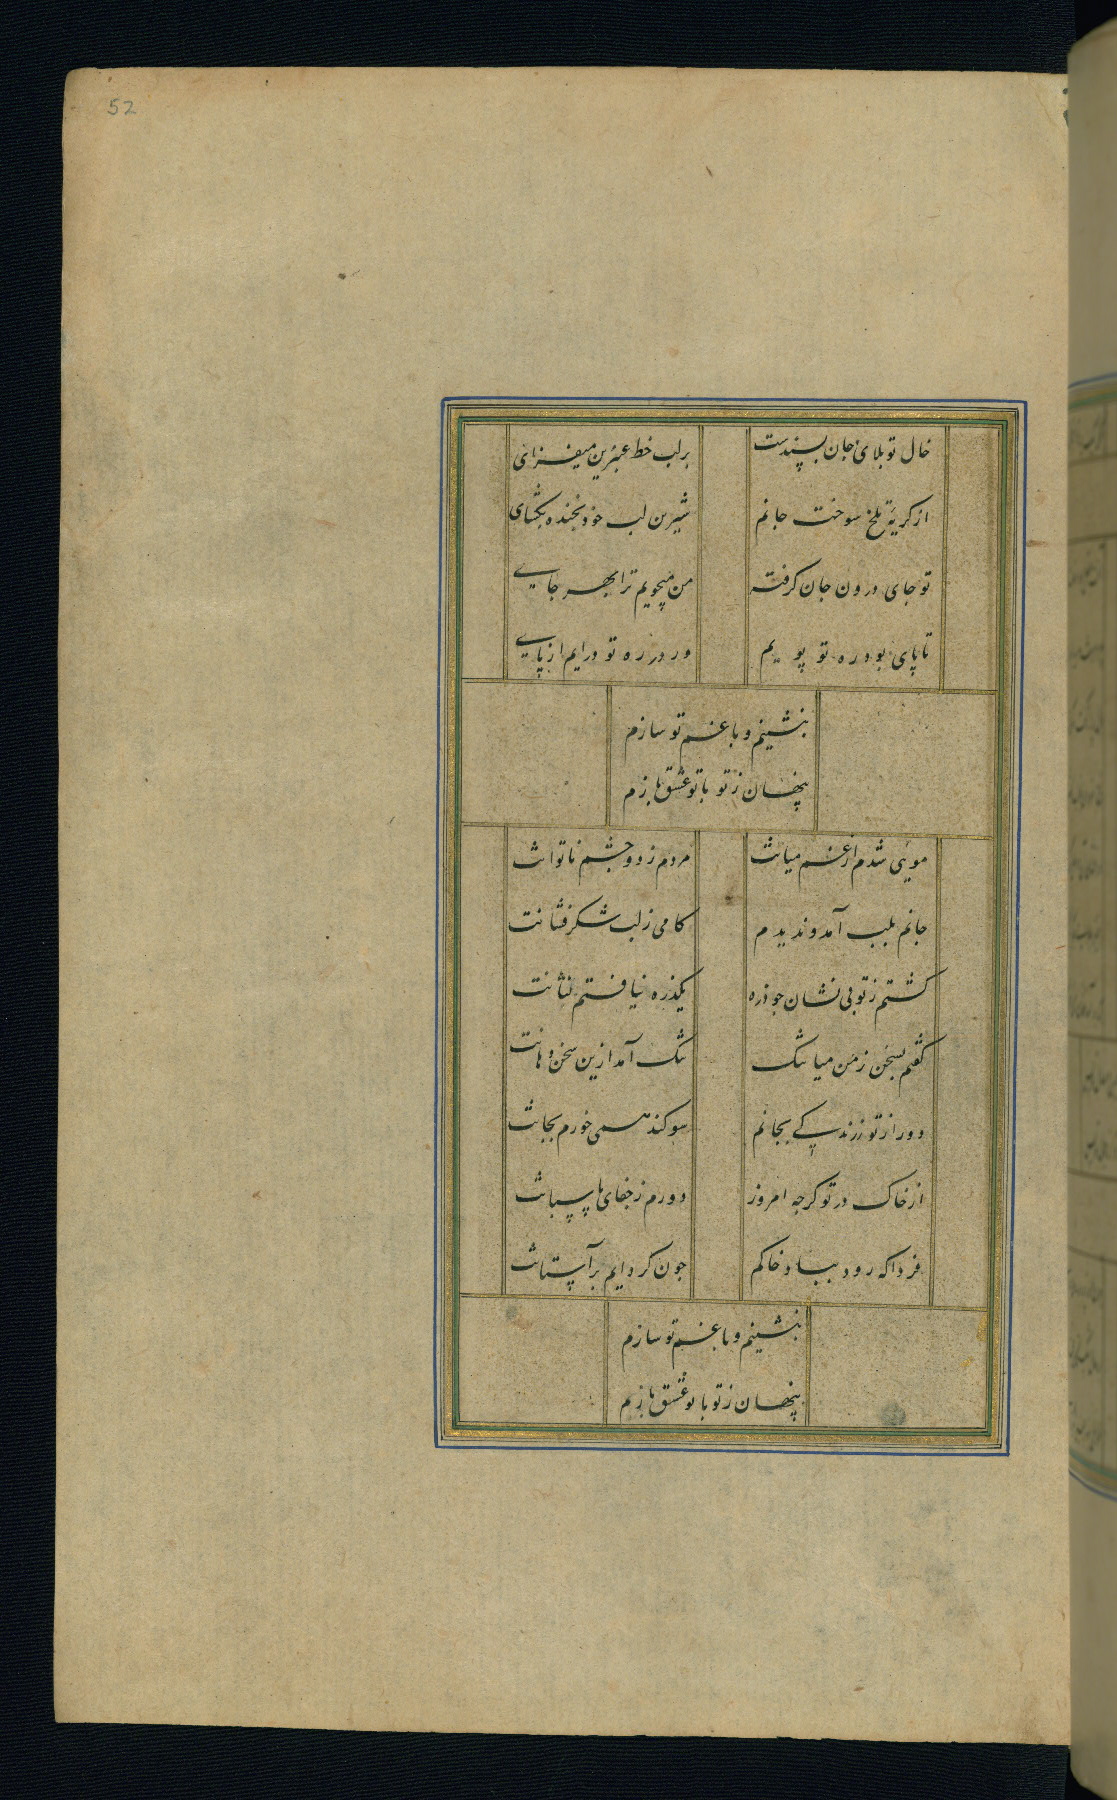 52
خال تو بلای جان پسندست
بر لب خط عنبرین میفزای
از کریهٔ تلخ سوخت جانم
شیرین لب خود بخنده بکشای
تو جای درون جان کرفته
من میجویم ترا بهر جایی
تا پای بود ره تو پویم
ور در ره تو درایم از پایی
بنشینم و با غم تو سازم
پنهان ز تو با تو عشق بازم
مویی شدم از غم میانت
مردم ز دو چشم ناتوانت
جانم بلب آمد و ندیدم
کامی ز لب شکرفشانت
کشتم ز تو بی نشان جو ذره
یکذره نیافتم نشانت
کفتم بسخن ز من میا تنک
تنک آمد ازین سخن دهانت
دور از تو نزند پی بجانم
سوکند همی خورم بجانت
از خاک در تو کرجه امروز
دورم ز جفای پاسبانت
فردا که رود بباد خاکم
جون کرد ایم بر آستانت
بنشینم و با غم تو سازم
پنهان ز تو با تو عشق بازم